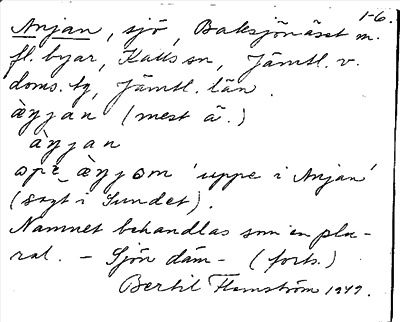 1-6.
Anjan, sjö, Baksjönäset m.
fl. byar, Kalls sn, Jämtl. v.
doms. tg, Jämtl. län.
àŋjan (mest ā.)
àŋjan
àŋjom 'uppe i Anjan'
(sagt i Sundet).
Namnet behandlas som en plu-
ral. — Sjön däm- (forts.)
Bertil Flemström 1949.